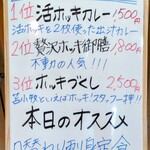 1位 活ホッキカレー 1500円
活ホッキを2枚使った出汁カレー
2位 贅沢ホッキ御膳 1,800円
不動の人気!!!
3位 ホッキづくし 2,500円
苫小牧といえばホッキ!スタッフ一押!!
本日のオススメ